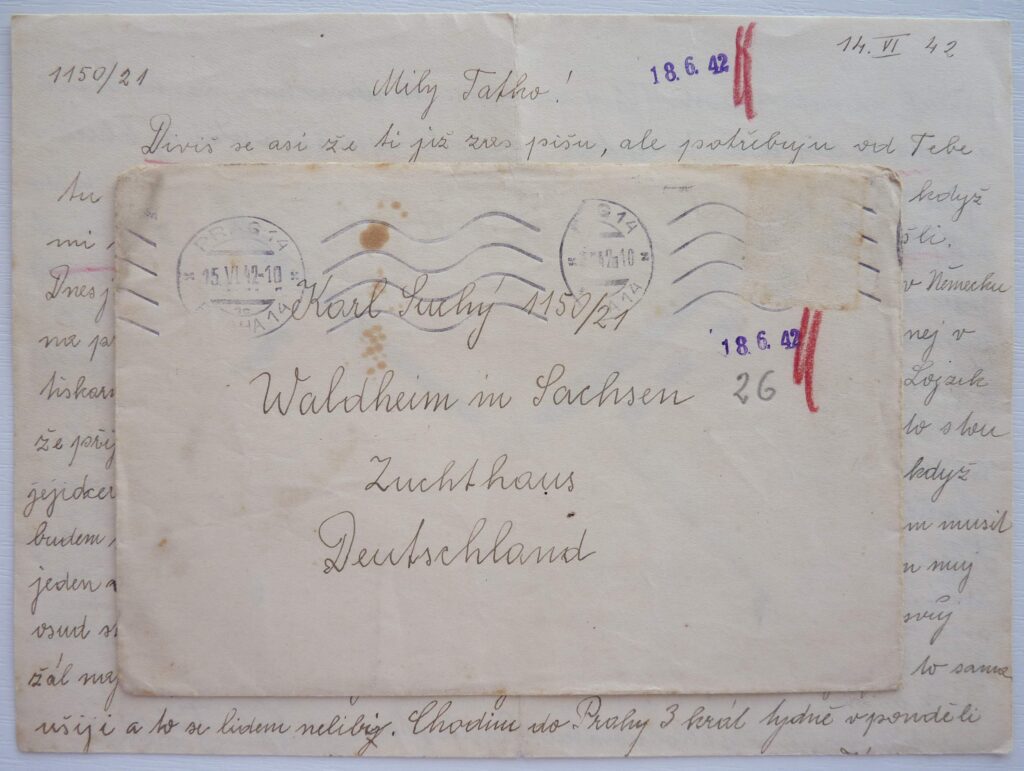 1150/21
18. 6. 42
14. VI 42
Milý Tatko!
Diviš se asi že ti již zas píšu, ale potřebuju od Tebe
tu
když
mi
šli.
Dnes
v Německu
na
nej v
tiskar
Lojzik
že při
to stou
když
budem
musit
jeden
muj
osud
svůj
žál
to sama
ušiji a to se lidem nelibiy. Chodim do Prahy 3 krát tydně v ponděli
PRAG 14
15. VI. 42-10
PRAHA 14
14
42-10
HA 14
Karl Suchý 1150/21
18. 6. 42
26
Waldheim in Sachsen
Zuchthaus
Deutschland